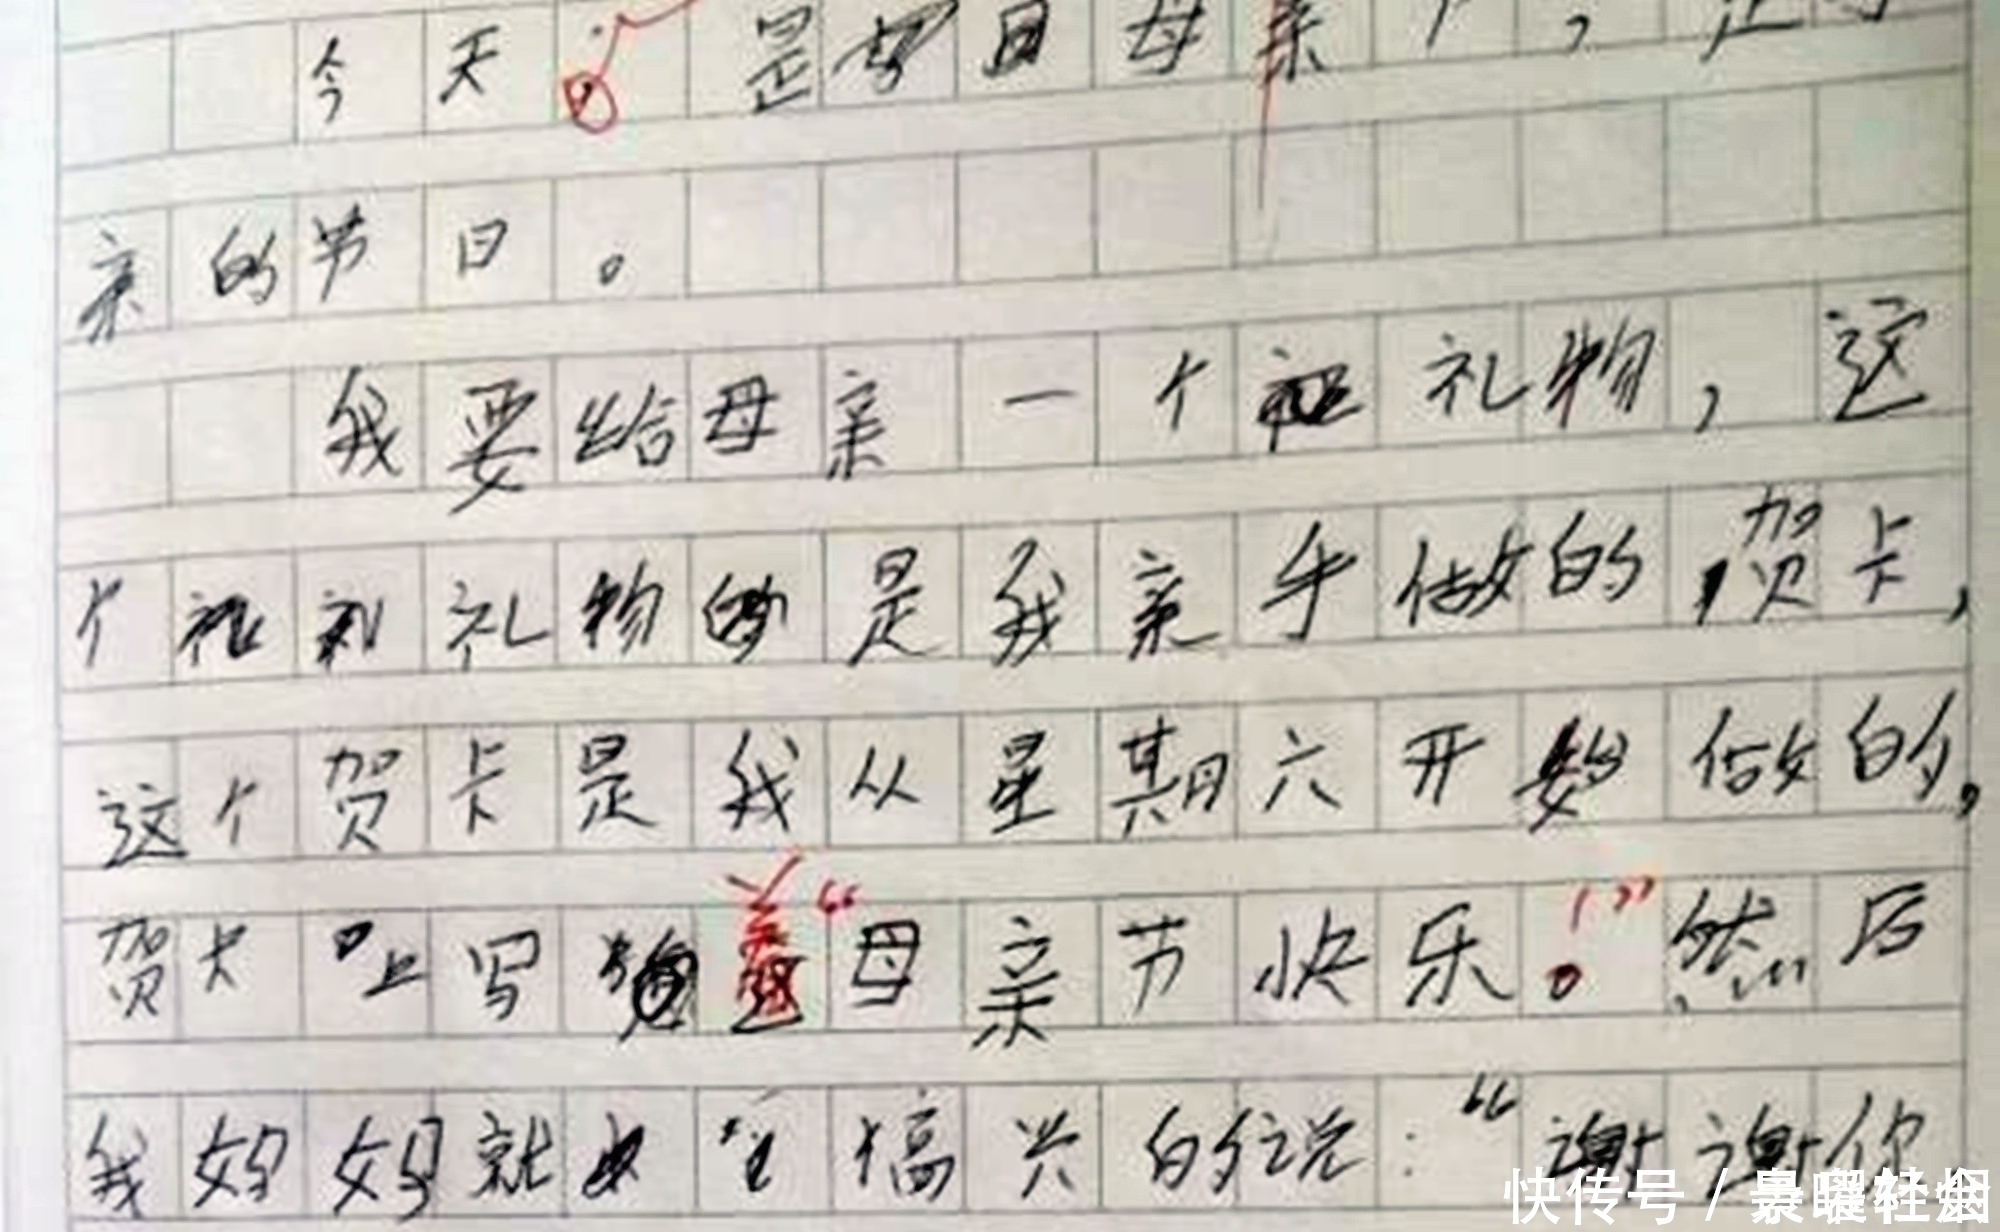 今天是母亲节，这
亲的节日。
我要给母亲一个礼物，这
个礼物的是我亲手做的贺卡，
这个贺卡是我从星期六开始做的，
贺卡上写着“母亲节快乐！”然后
我妈妈就搞兴的说：“谢谢你
快传号／景曜社